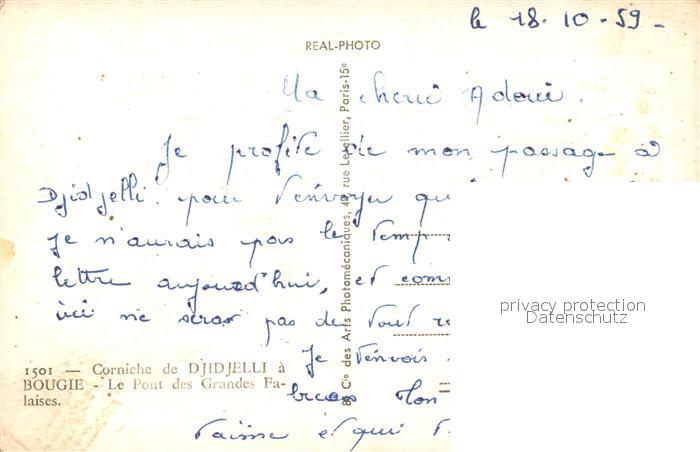 le 18-10-59-
REAL-PHOTO
Ma cherie Adorée.
Je profite de mon passage à
Djidjelli. pour t'envoyer
Je n'aurais pas le temp
lettre aujourd'hui, et com
ici ne sera pas de tout
Je t'envois
Ton
t'aime et qui
1501 — Corniche de DJIDJELLI à
BOUGIE - Le Pont des Grandes Fa-
laises.
Cie des Arts Photomécaniques, rue Letellier, Paris-15e
privacy protection
Datenschutz